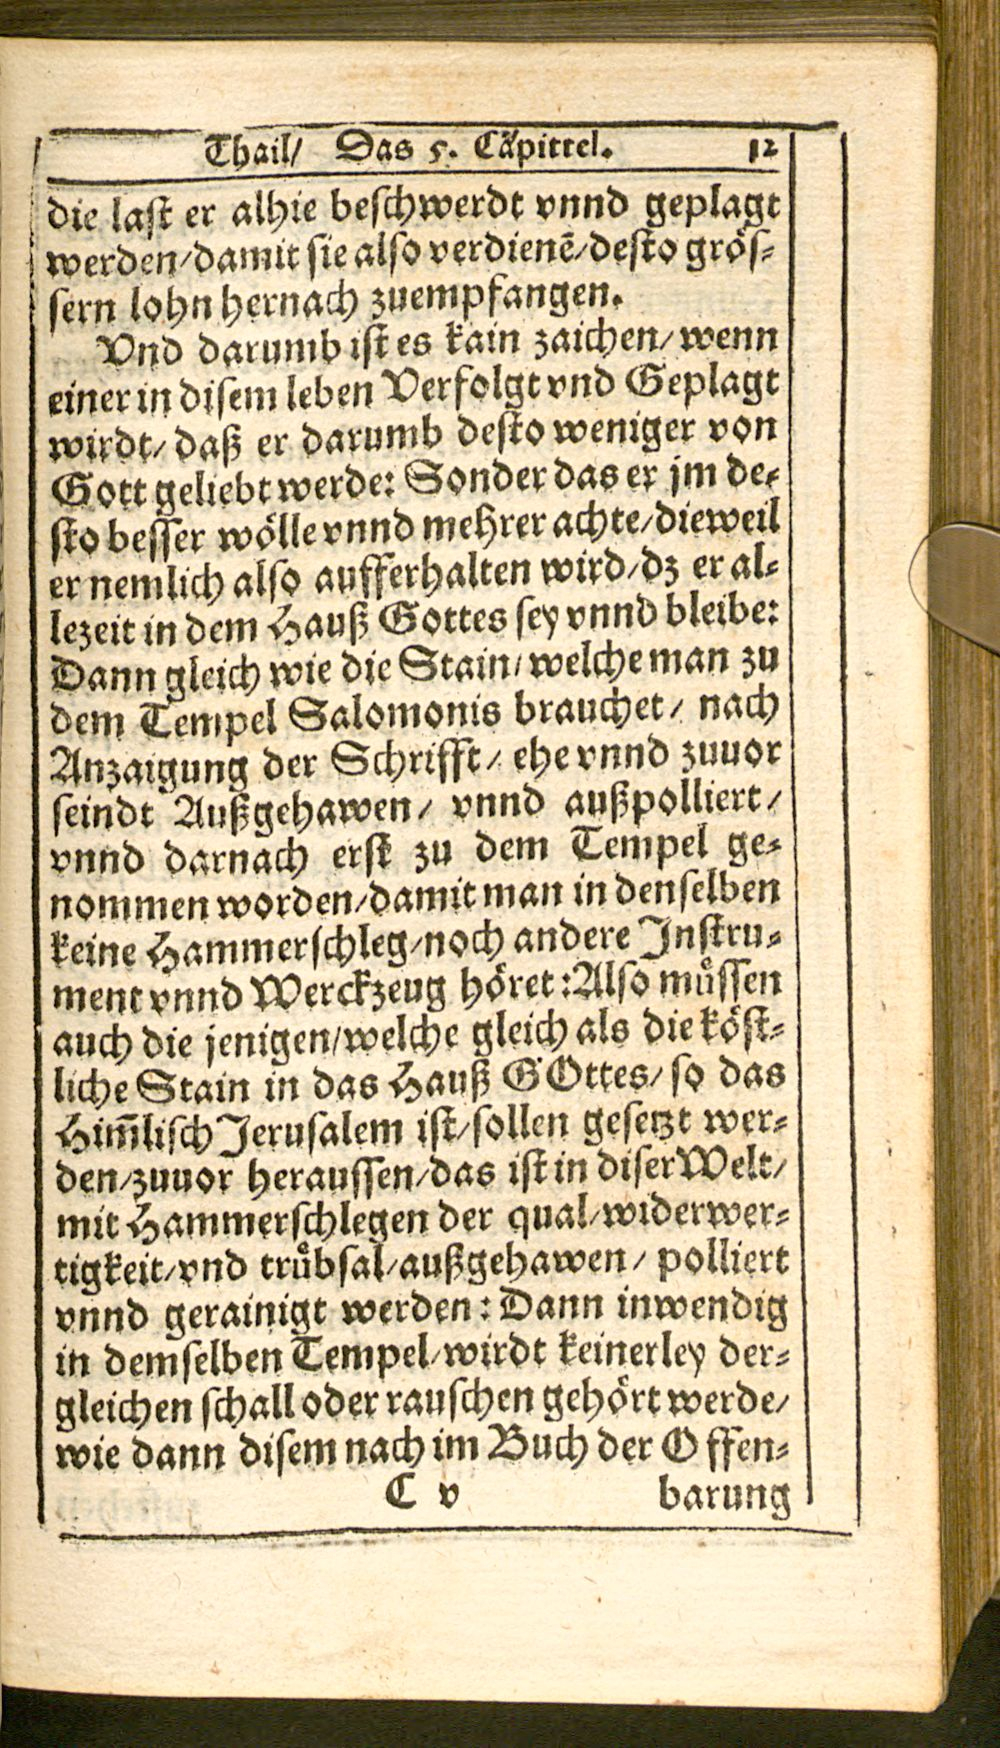 Thail/ Das 5. Capittel. 12
die last er alhie beschwerdt vnnd geplagt
werden/damit sie also verdienẽ/desto grös-
sern lohn hernach zuempfangen.
Vnd darumb ist es kain zaichen/wenn
einer in disem leben Verfolgt vnd Geplagt
wirdt/daß er darumb desto weniger von
Gott geliebt werde: Sonder das er jm de-
sto besser wölle vnnd mehrer achte/dieweil
er nemlich also aufferhalten wird/dz er al-
lezeit in dem Hauß Gottes sey vnnd bleibe:
Dann gleich wie die Stain/welche man zu
dem Tempel Salomonis brauchet/ nach
Anzaigung der Schrifft/ ehe vnnd zuuor
seindt Außgehawen/ vnnd außpolliert/
vnnd darnach erst zu dem Tempel ge-
nommen worden/damit man in denselben
keine Hammerschleg/noch andere Instru-
ment vnnd Werckzeug höret:Also müssen
auch die jenigen/welche gleich als die köst-
liche Stain in das Hauß GOttes/ so das
Him̃lisch Jerusalem ist/sollen gesetzt wer-
den/zuuor heraussen/das ist in diser Welt/
mit Hammerschlegen der qual/widerwer-
tigkeit/vnd trübsal/außgehawen/ polliert
vnnd gerainigt werden: Dann inwendig
in demselben Tempel/wirdt keinerley der-
gleichen schall oder rauschen gehört werde/
wie dann disem nach im Buch der Offen-
C v barung